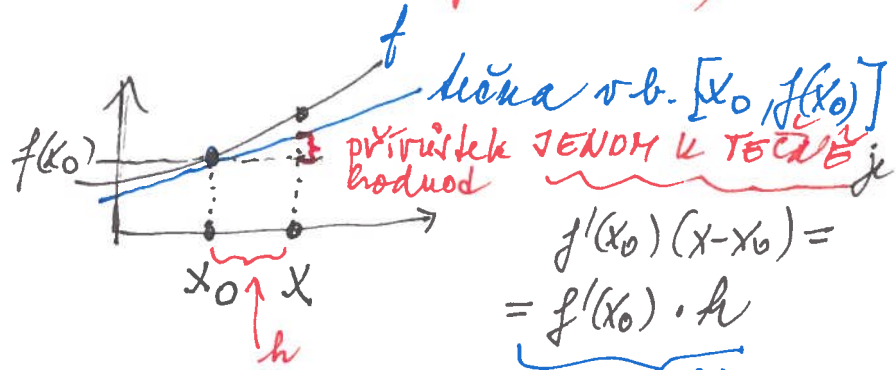 f
tečna v b. [x₀, f(x₀)]
f(x₀)
přírůstek JENOM K TEČNĚ je
hodnod
f'(x₀)(x-x₀) =
x₀ x
= f'(x₀) · h
h